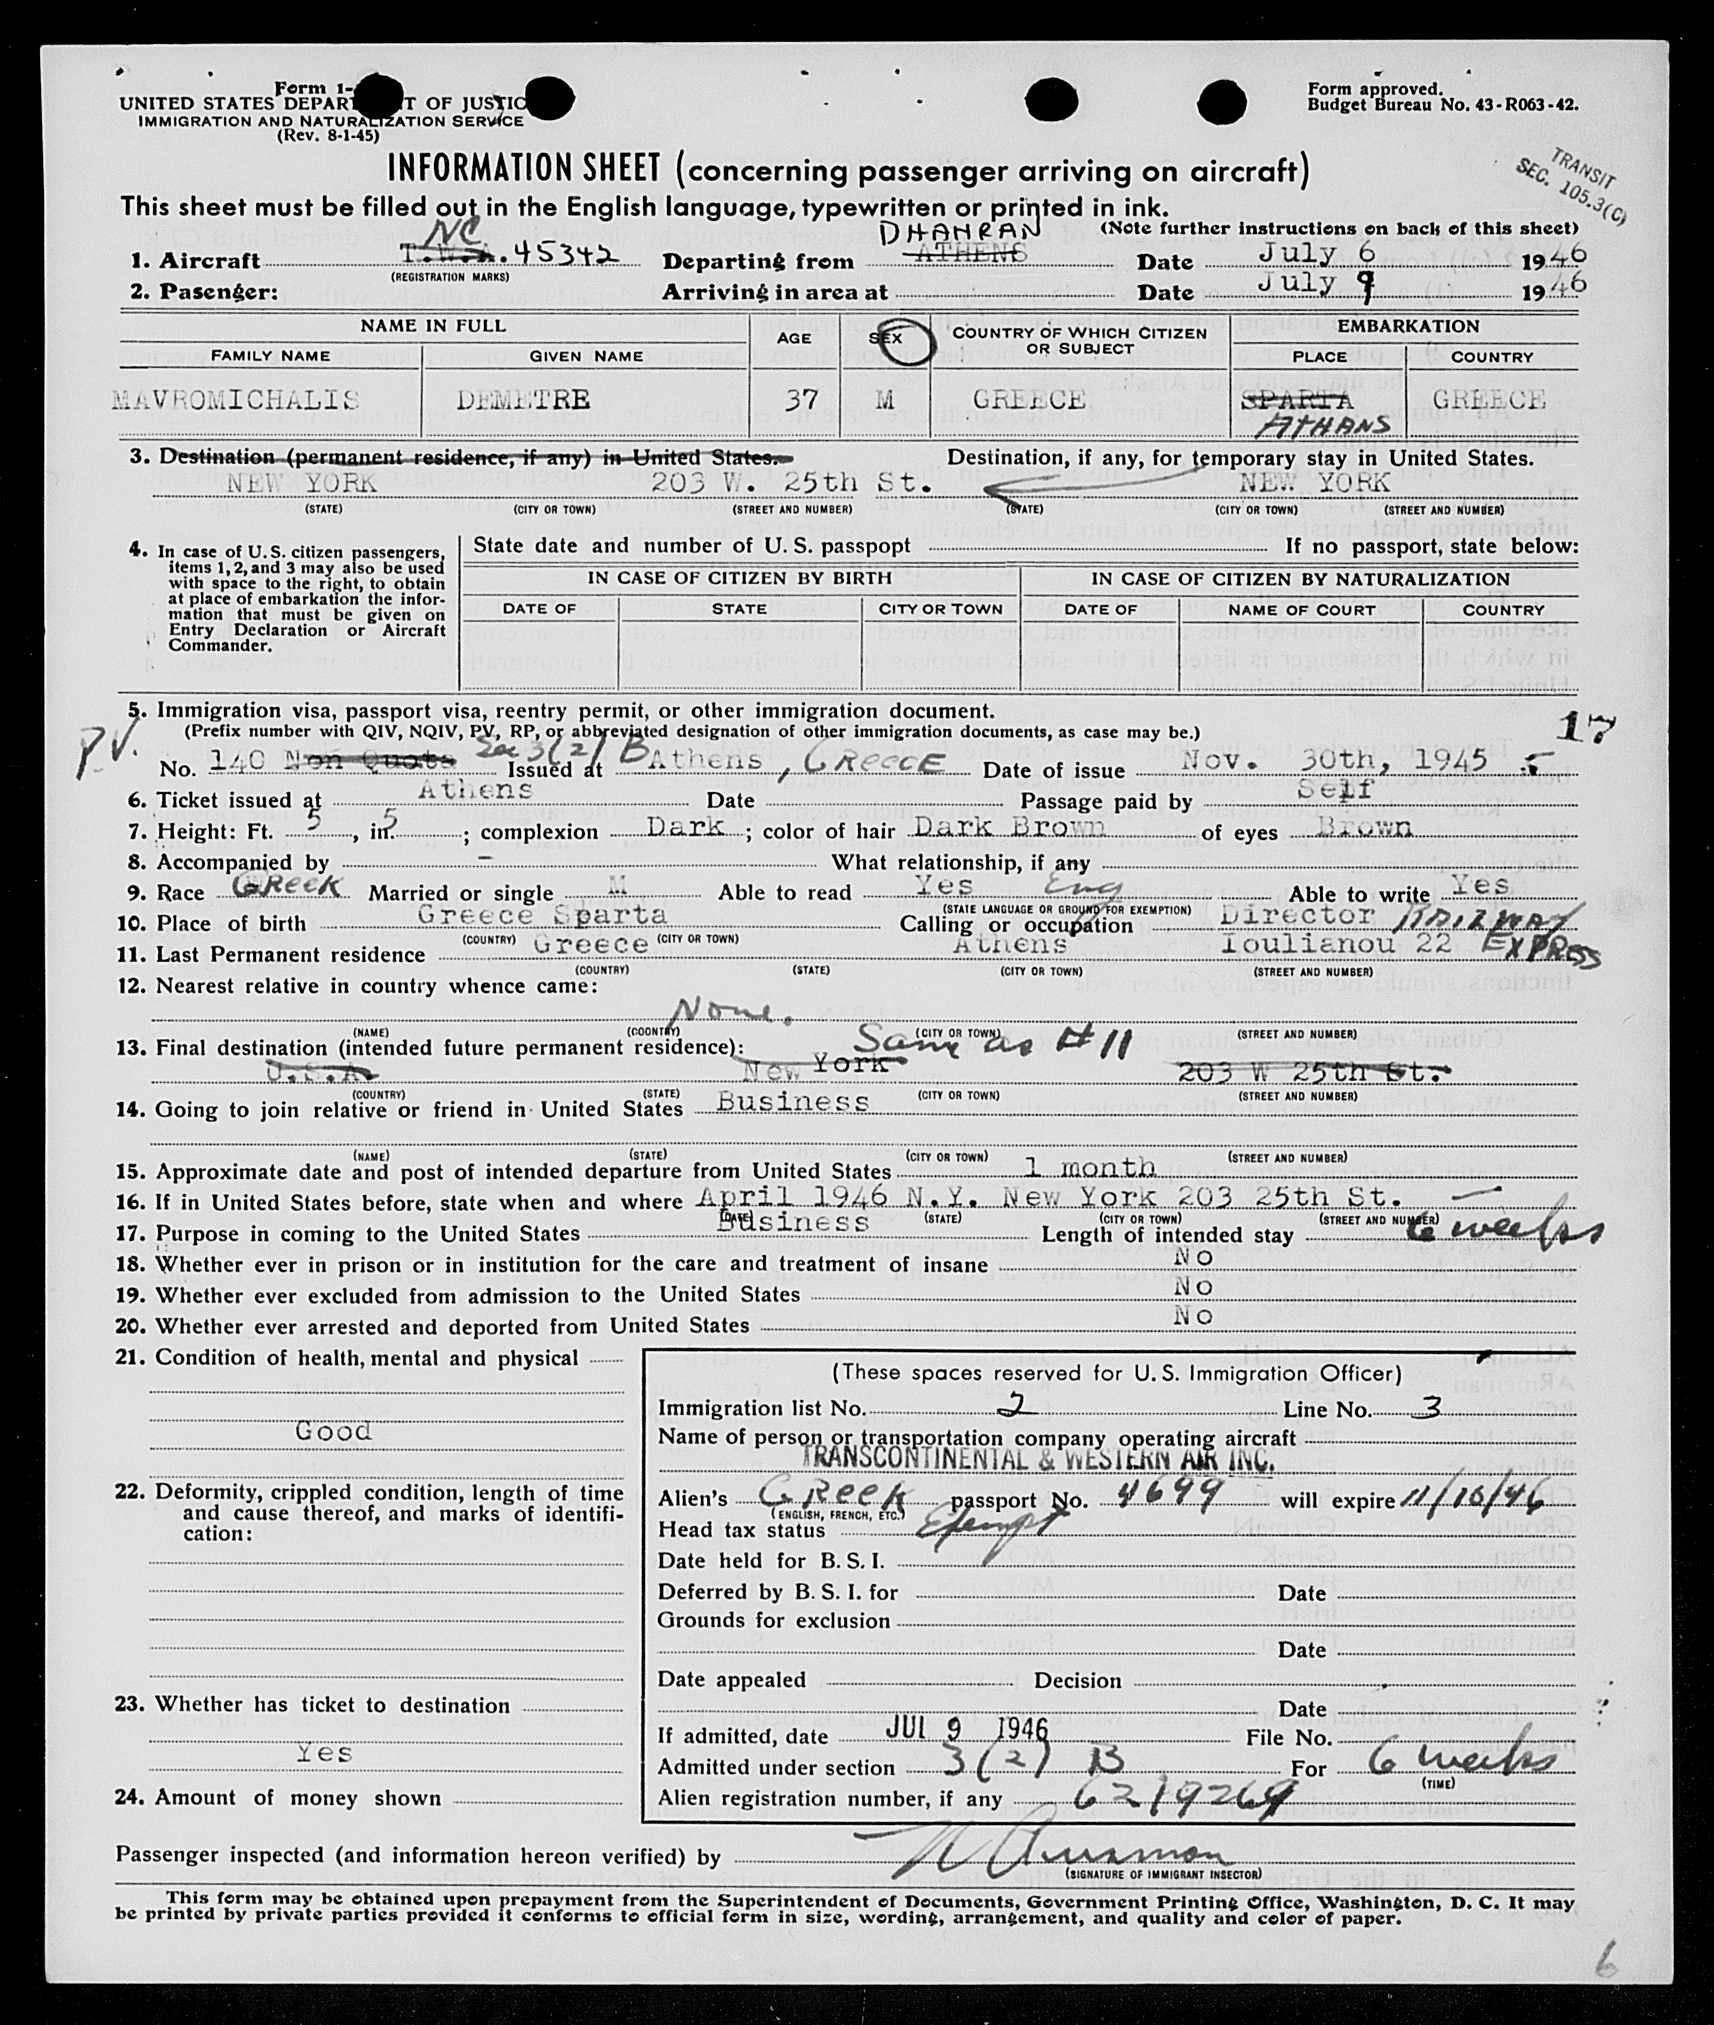 Form 1-
UNITED STATES DEPAR T OF JUSTIC
IMMIGRATION AND NATURALIZATION SERVICE
(Rev. 8-1-45)
Form approved.
Budget Bureau No. 43-R063-42.
INFORMATION SHEET (concerning passenger arriving on aircraft)
TRANSIT
SEC. 105.3(C)
This sheet must be filled out in the English language, typewritten or printed in ink.
(Note further instructions on back of this sheet)
NC DHAHRAN
1. Aircraft T.W.A. 45342 Departing from ATHENS Date July 6 1946
(REGISTRATION MARKS)
2. Pasenger: Arriving in area at Date July 9 1946
NAME IN FULL AGE SEX COUNTRY OF WHICH CITIZEN OR SUBJECT EMBARKATION
FAMILY NAME GIVEN NAME PLACE COUNTRY
MAVROMICHALIS DEMETRE 37 M GREECE SPARTA GREECE
ATHANS
3. Destination (permanent residence, if any) in United States. Destination, if any, for temporary stay in United States.
NEW YORK 203 W. 25th St. NEW YORK
(STATE) (CITY OR TOWN) (STREET AND NUMBER) (STATE) (CITY OR TOWN) (STREET AND NUMBER)
4. In case of U.S. citizen passengers, items 1, 2, and 3 may also be used with space to the right, to obtain at place of embarkation the information that must be given on Entry Declaration or Aircraft Commander.
State date and number of U. S. passpopt If no passport, state below:
IN CASE OF CITIZEN BY BIRTH IN CASE OF CITIZEN BY NATURALIZATION
DATE OF STATE CITY OR TOWN DATE OF NAME OF COURT COUNTRY
5. Immigration visa, passport visa, reentry permit, or other immigration document.
(Prefix number with QIV, NQIV, PV, RP, or abbreviated designation of other immigration documents, as case may be.)
17
P.V. Sec 3(2) B
No. 140 Non Quota Issued at Athens, GREECE Date of issue Nov. 30th, 1945 5
6. Ticket issued at Athens Date Passage paid by Self
7. Height: Ft. 5, in. 5; complexion Dark; color of hair Dark Brown of eyes Brown
8. Accompanied by - What relationship, if any
9. Race GREEK Married or single M Able to read Yes Eng Able to write Yes
(STATE LANGUAGE OR GROUND FOR EXEMPTION)
10. Place of birth Greece Sparta Calling or occupation Director RAILWAY
(COUNTRY) (CITY OR TOWN)
11. Last Permanent residence Greece Athens Ioulianou 22 EXPRESS
(COUNTRY) (STATE) (CITY OR TOWN) (STREET AND NUMBER)
12. Nearest relative in country whence came:
None.
(NAME) (COONTRY) (CITY OR TOWN) (STREET AND NUMBER)
13. Final destination (intended future permanent residence): Same as #11
U.S.A. New York 203 W 25th St.
(COUNTRY) (STATE) (CITY OR TOWN) (STREET AND NUMBER)
14. Going to join relative or friend in United States Business
(NAME) (STATE) (CITY OR TOWN) (STREET AND NUMBER)
15. Approximate date and post of intended departure from United States 1 month
16. If in United States before, state when and where April 1946 N.Y. New York 203 25th St.
(DATE) (STATE) (CITY OR TOWN) (STREET AND NUMBER)
17. Purpose in coming to the United States Business Length of intended stay 6 weeks
18. Whether ever in prison or in institution for the care and treatment of insane NO
19. Whether ever excluded from admission to the United States NO
20. Whether ever arrested and deported from United States NO
21. Condition of health, mental and physical
Good
22. Deformity, crippled condition, length of time and cause thereof, and marks of identification:
23. Whether has ticket to destination
Yes
24. Amount of money shown
(These spaces reserved for U.S. Immigration Officer)
Immigration list No. 2 Line No. 3
Name of person or transportation company operating aircraft
TRANSCONTINENTAL & WESTERN AIR INC.
Alien's GREEK passport No. 4699 will expire 11/10/46
(ENGLISH, FRENCH, ETC.)
Head tax status Exempt
Date held for B. S. I.
Deferred by B. S. I. for Date
Grounds for exclusion
Date
Date appealed Decision
Date
If admitted, date JUL 9 1946 File No.
Admitted under section 3(2) B For 6 weeks
(TIME)
Alien registration number, if any 6219269
Passenger inspected (and information hereon verified) by
(SIGNATURE OF IMMIGRANT INSECTOR)
This form may be obtained upon prepayment from the Superintendent of Documents, Government Printing Office, Washington, D. C. It may
be printed by private parties provided it conforms to official form in size, wording, arrangement, and quality and color of paper.
6